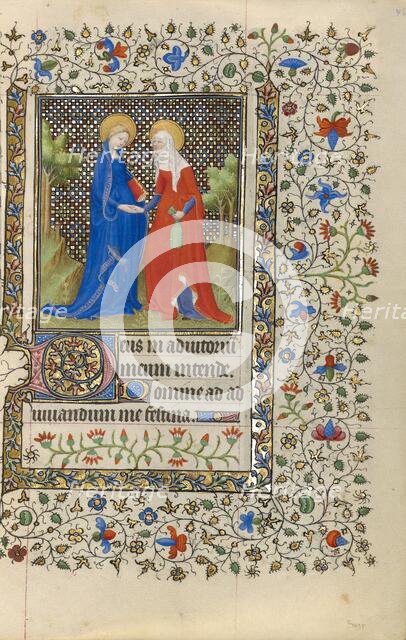 Deus in adiutoriu
meum intende.
Domine ad ad
iuuandum me festina.
Heritage
Heritage
Heritage
Heritage
Heritage
Heritage